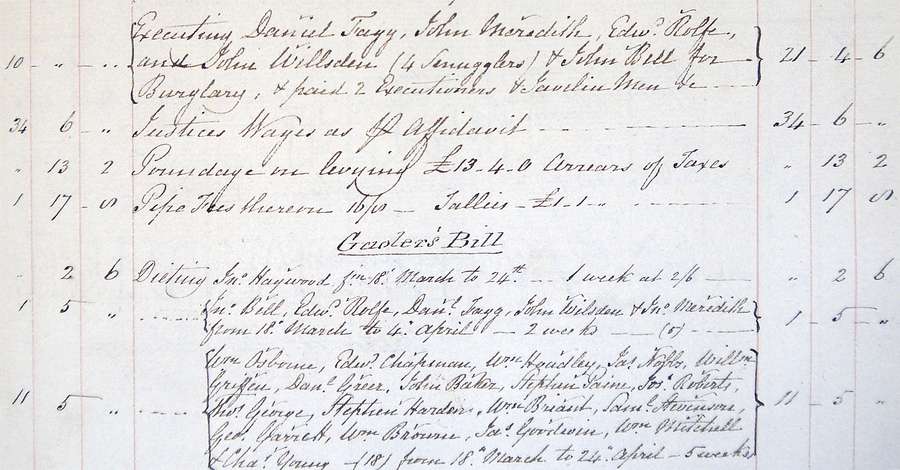 Executing Daniel Tagg, John Meredith, Edwd. Rolfe,
10 - „ - .. and John Willsden (4 Smugglers) & John Bell for 21 - 4 - 6
Burglary, & paid 2 Executioners & Javelin Men &c
34 6 „ Justices Wages as P Affidavit 34 - 6 - „
„ 13 2 Poundage on levying £13-4-0 Arrears of Taxes „ 13 2
1 17 - 8 Pipe Fees thereon 16/8 — Tallies - £1-1- „ 1 17 8
Gaoler's Bill
„ 2 6 Dieting Jno. Haywood fm. 18. March to 24th — 1 week at 2/6 „ 2 6
1 5 „ Jno. Bell, Edwd. Rolfe, Danl. Tagg, John Wilsden & Jno. Meredith 1 - 5 - „
from 18. March to 4. April — 2 weeks — (5)
Wm Osborne, Edwd. Chapman, Wm Houdley, Jas. Nobbs, Willm.
Griffen, Danl. Greer, John Baker, Stephen Paine, Jos. Roberts,
11 5 „ Thos. George, Stephen Harden, Wm Briant, Saml. Stevenson, 11 - 5 - „
Geo. Garrett, Wm Browne, Jas. Goodwin, Wm Mitchell
& Chas. Young — (18) from 18. March to 24. April — 5 weeks